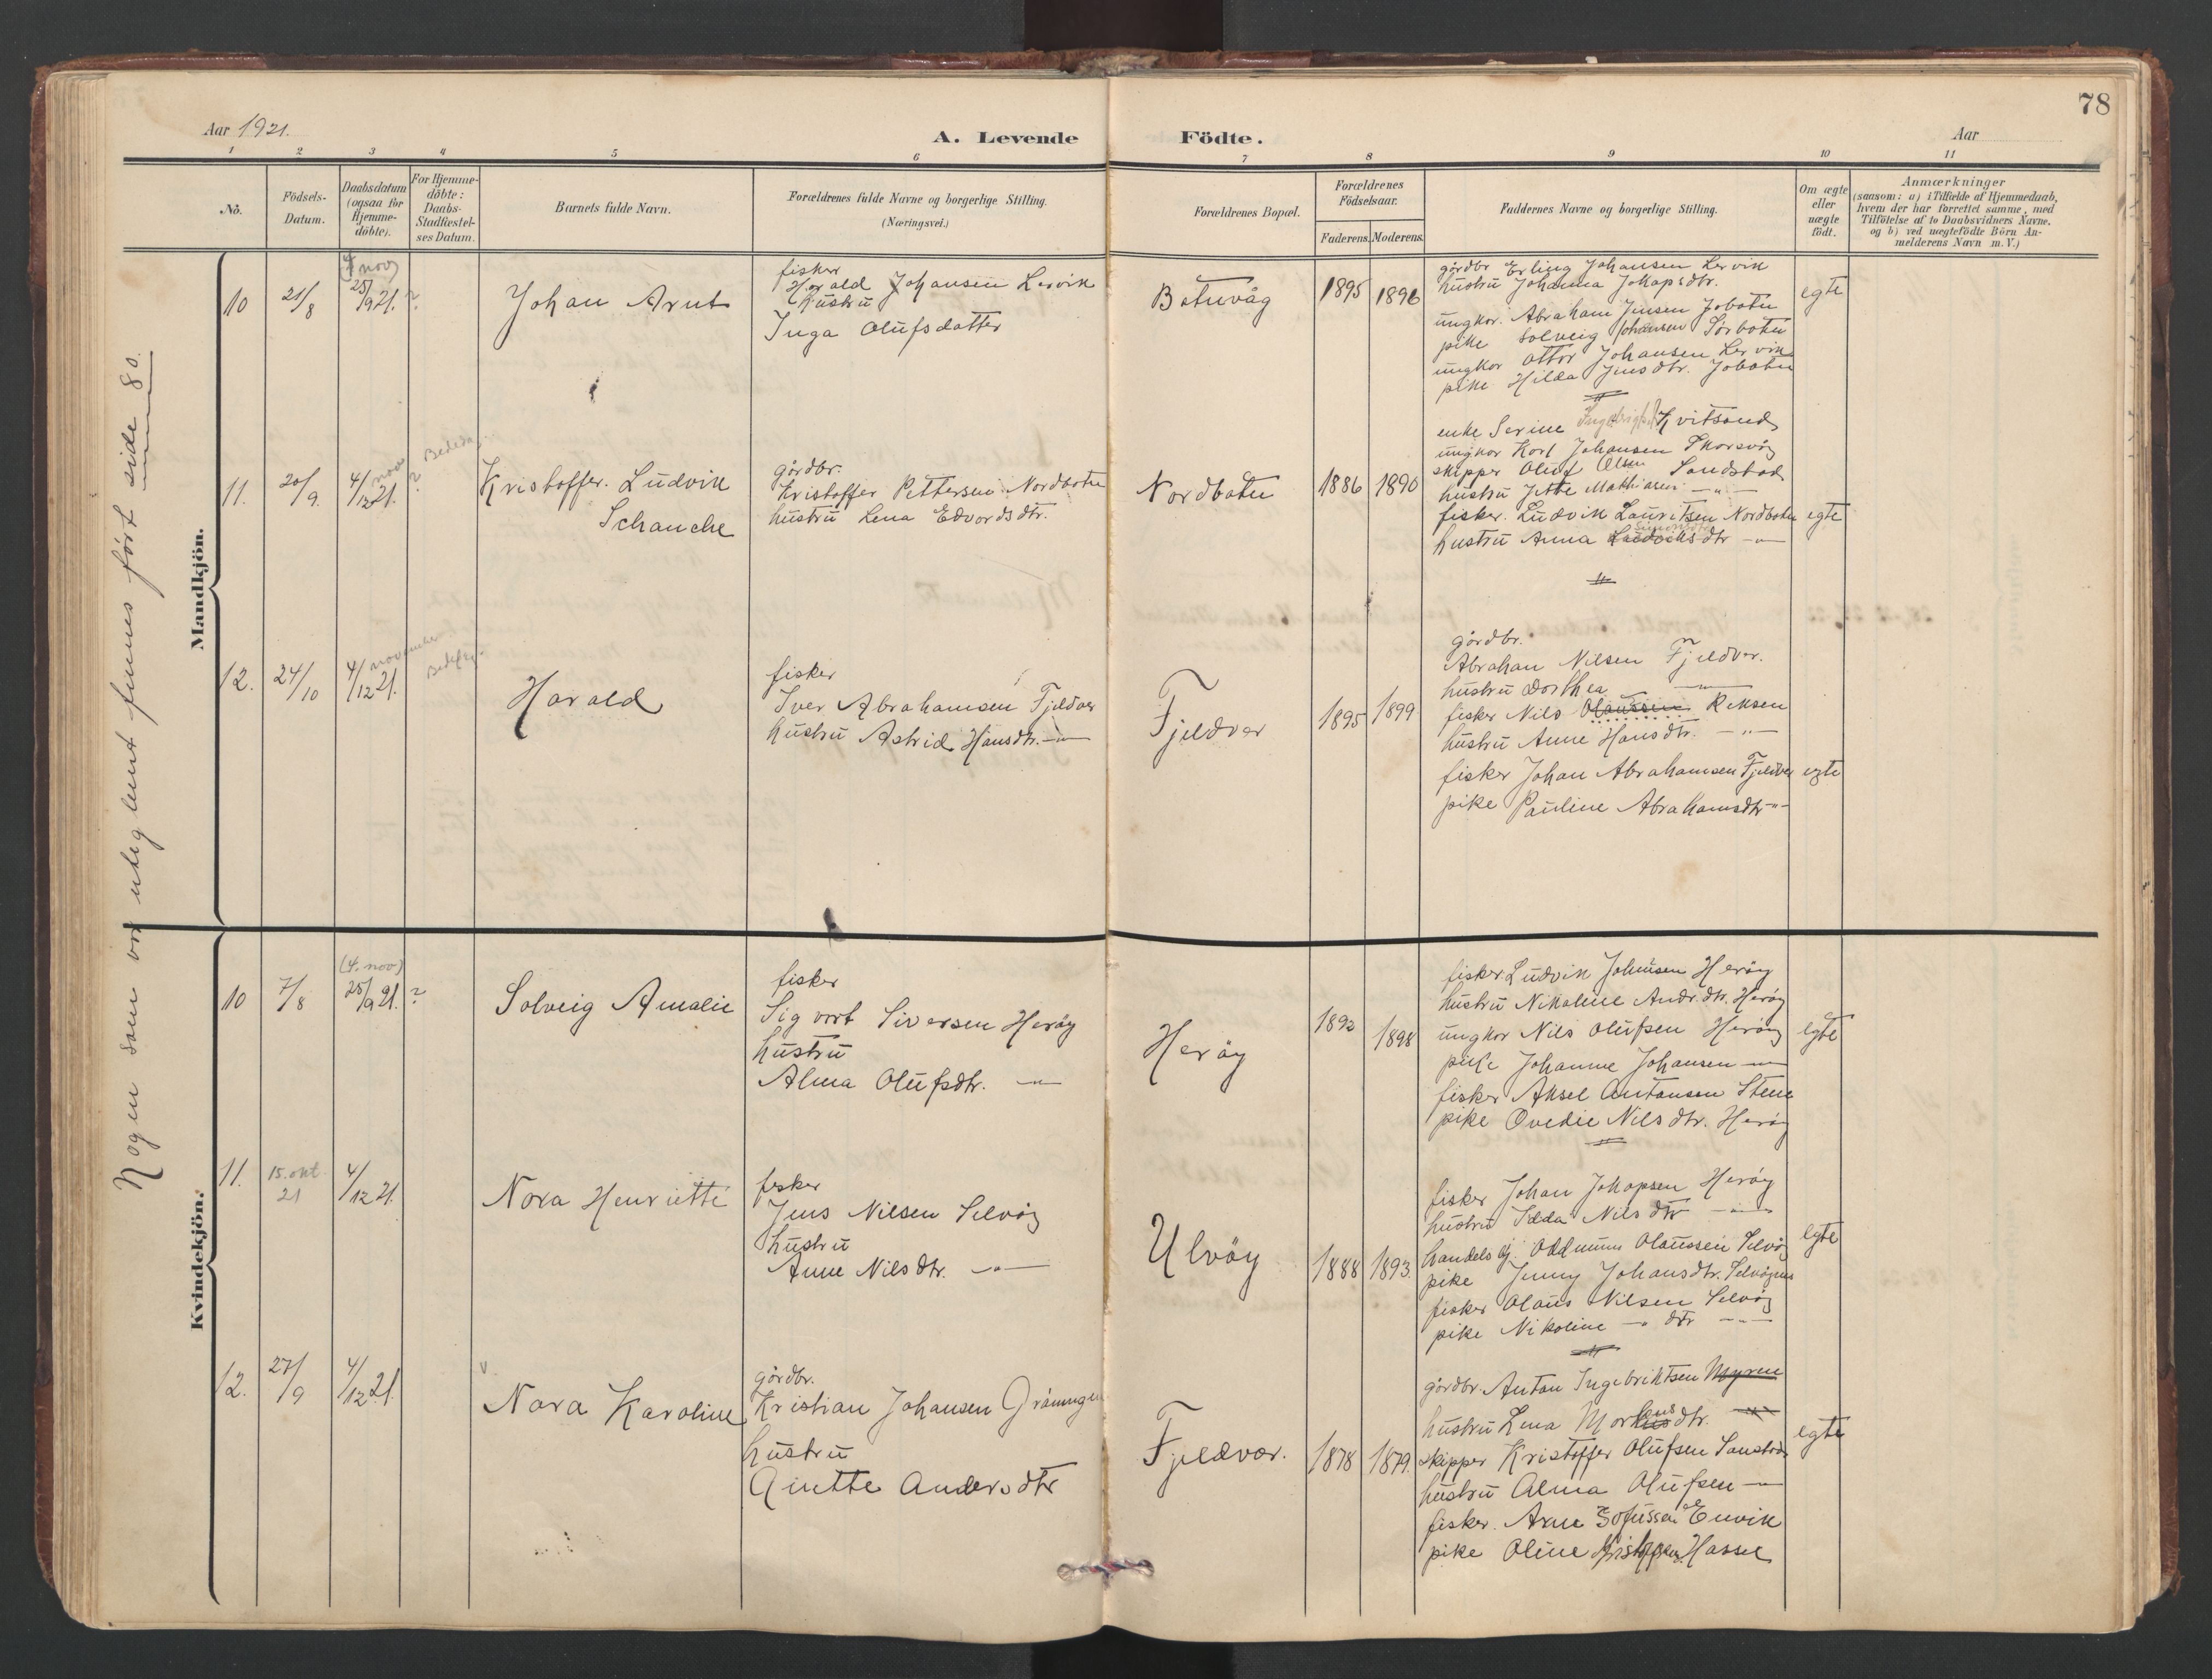 78
Aar 1921.
A. Levende Födte.
Aar
1 2 3 4 5 6 7 8 9 10 11
Nô.
Födsels-
Datum.
Daabsdatum
(ogsaa for
Hjemme-
döbte).
For Hjemme-
döbte:
Daabs-
Stadfæstel-
ses Datum.
Barnets fulde Navn.
Forældrenes fulde Navne og borgerlige Stilling.
(Næringsvei.)
Forældrenes Bopæl.
Forældrenes
Födselsaar.
Faderens.
Moderens.
Faddernes Navne og borgerlige Stilling.
Om ægte
eller
uægte
födt.
Anmærkninger
(saasom: a) i Tilfælde af Hjemmedaab,
hvem der har forrettet samme, med
Tilföielse af to Daabsvidners Navne,
og b) ved uægtefödte Börn An-
melderens Navn m. V.)
Nogen som var uteglemt finnes ført side 80.
Mandkjön.
10
21/8
(4 nov)
25/9 21. ?
Johan Arnt
fisker
Harald Johansen Lervik
hustru
Inga Olufsdatter
Botnvåg
1895
1896
gårdbr Erling Johansen Lervik
hustru Johanna Jokapsdtr.
ungkar. Abraham Jensen Jobotn
pike Solveig Johansen Sörbotn
ungkar Ottar Johansen Lervik
pike Hilda Jensdtr. Jobotn
egte
11.
20/9.
4/12 21.
nov
? Bededag
Kristoffer. Ludvik
Schanche
gårdbr.
Kristoffer Pettersen Nordbotn
hustru Lena Edvardsdtr.
Nordbotn
1886
1890
enke Serine Kvitsand
ungkar Karl Johansen Skarsvåg
skipper Oluf Olsen Sandstad
hustru Jette Mathiasen - " -
fisker. Ludvik Lauritsen Nordbotn
hustru Anna Ludviksdtr - " -
egte
12.
24/10
4/12 21.
november
Harald
fisker
Iver Abrahamsen Fjeldvær
hustru Astrid Hansdtr. - " -
Fjeldvær
1895
1899
gårdbr.
Abrahan Nilsen Fjeldvær.
hustru Dorthea - " -
fisker Nils Olaussen Reksen
hustru Anne Hansdtr. - " -
fisker Johan Abrahamsen Fjeldvær
pike Pauline Abrahamsdtr - " -
egte
Kvindekjön.
10
7/8
(4. nov)
25/9 21. ?
Solveig Amalie
fisker
Sigvart Siversen Heröy
hustru
Alma Olufsdtr. - " -
Heröy
1892
1898
fisker Ludvik Johnsen Heröy
hustru Nikoline Andr.dtr. Heröy
ungkar Nils Olufsen Heröy
pike Johanne Johansen - " -
fisker Aksel Antonsen Stene
pike Ovedie Nilsdtr. Heröy
egte
11.
15. okt
21
4/12 21.
Nora Henriette
fisker
Jens Nilsen Selvåg
hustru
Anne Nilsdtr. - " -
Ulvöy
1888
1893.
fisker Johan Jokopsen Heröy
hustru Idda Nilsdtr - " -
handelsbj. Oddmun Olaussen Selvåg
pike Jenny Johansdtr. Selvågnes
fisker Olaus Nilsen Selvåg
pike Nikoline - " dtr - " -
egte
12.
27/9
4/12 21.
Nora Karoline
gårdbr.
Kristian Johansen Gröningen
hustru
Anette Andersdtr
Fjeldvær.
1878
1879.
gårdbr. Anton Ingebriktsen Myren
hustru Lena Mortensdtr.
skipper Kristoffer Olufsen Sanstad
hustru Alma Olufsen - " -
fisker. Arne Sofussen Envik
pike Oline Kristoffersen Hassel
egte